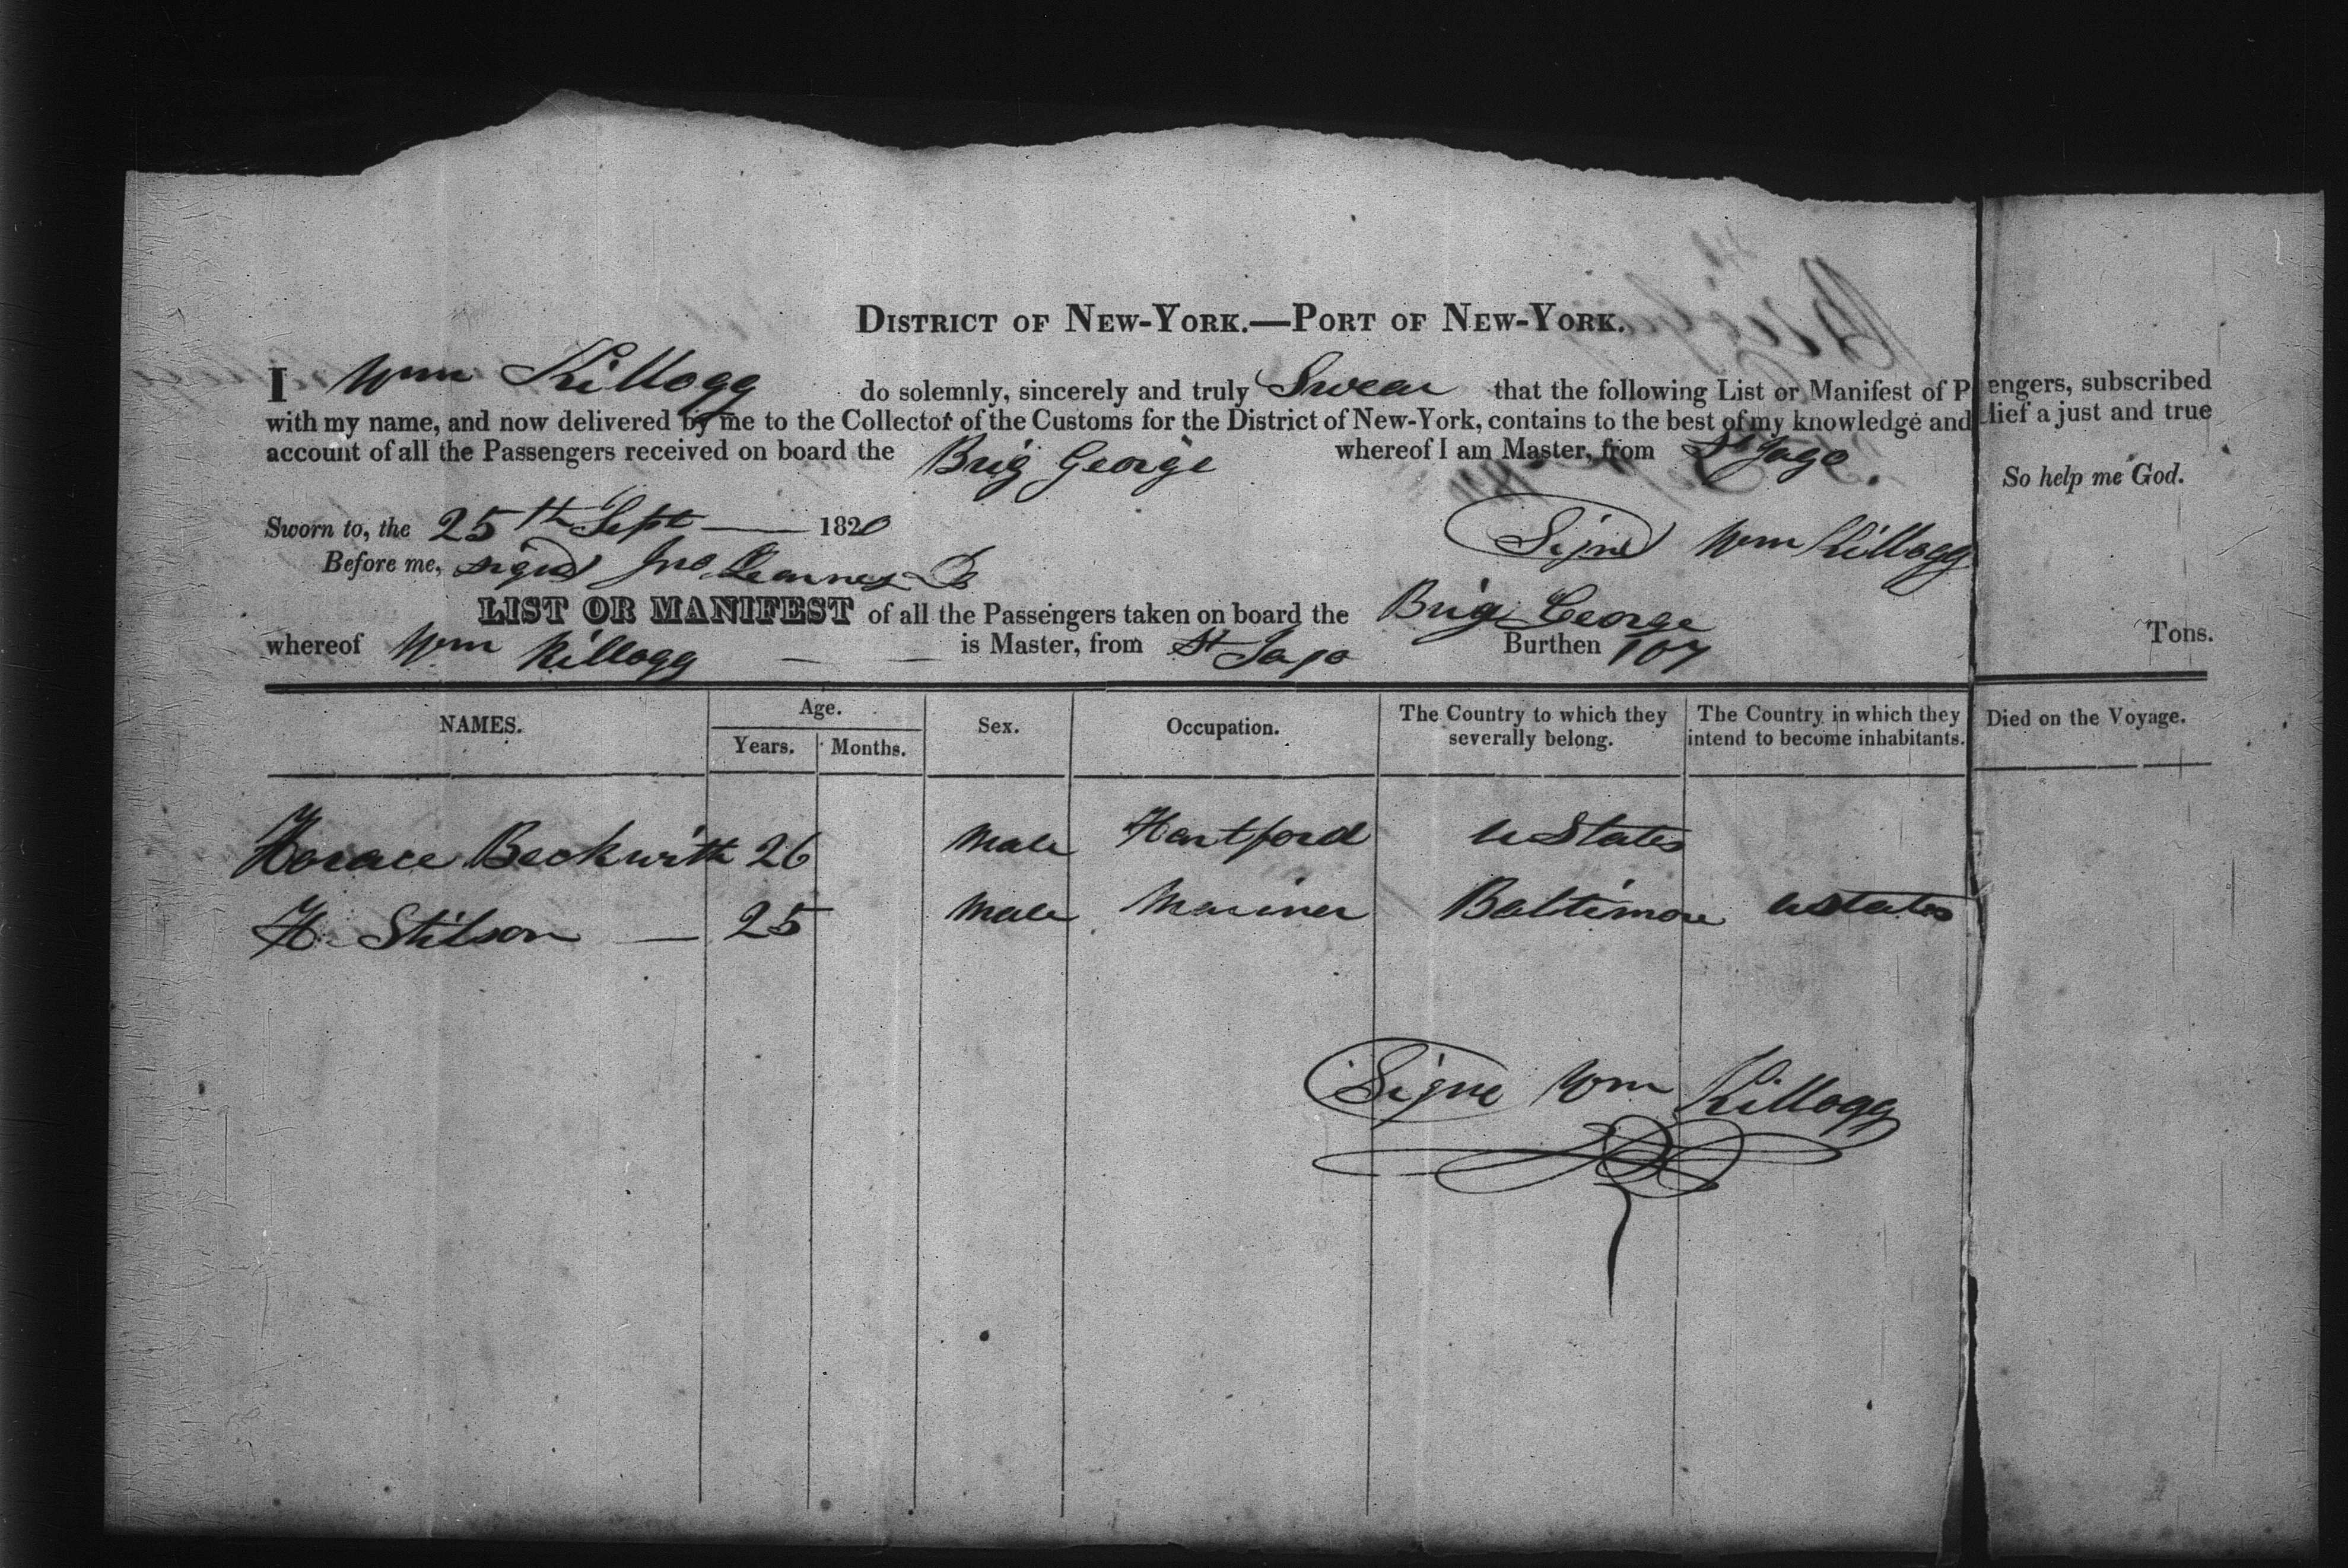 DISTRICT OF NEW-YORK.—PORT OF NEW-YORK.
I Wm Killogg do solemnly, sincerely and truly Swear that the following List or Manifest of P engers, subscribed
with my name, and now delivered by me to the Collector of the Customs for the District of New-York, contains to the best of my knowledge and lief a just and true
account of all the Passengers received on board the Brig George whereof I am Master, from St Jago.
So help me God.
Sworn to, the 25th Sept — 1820
Signd Wm Killogg
Before me, signd Jno
LIST OR MANIFEST of all the Passengers taken on board the Brig George
whereof Wm Killogg — — is Master, from St Jago Burthen 107 Tons.
NAMES. Age. Years. Months. Sex. Occupation. The Country to which they severally belong. The Country in which they intend to become inhabitants. Died on the Voyage.
Horace Beckwith 26 Male Hartford U States
H. Stilson — 25 Male Mariner Baltimore U States
Signe Wm Killogg